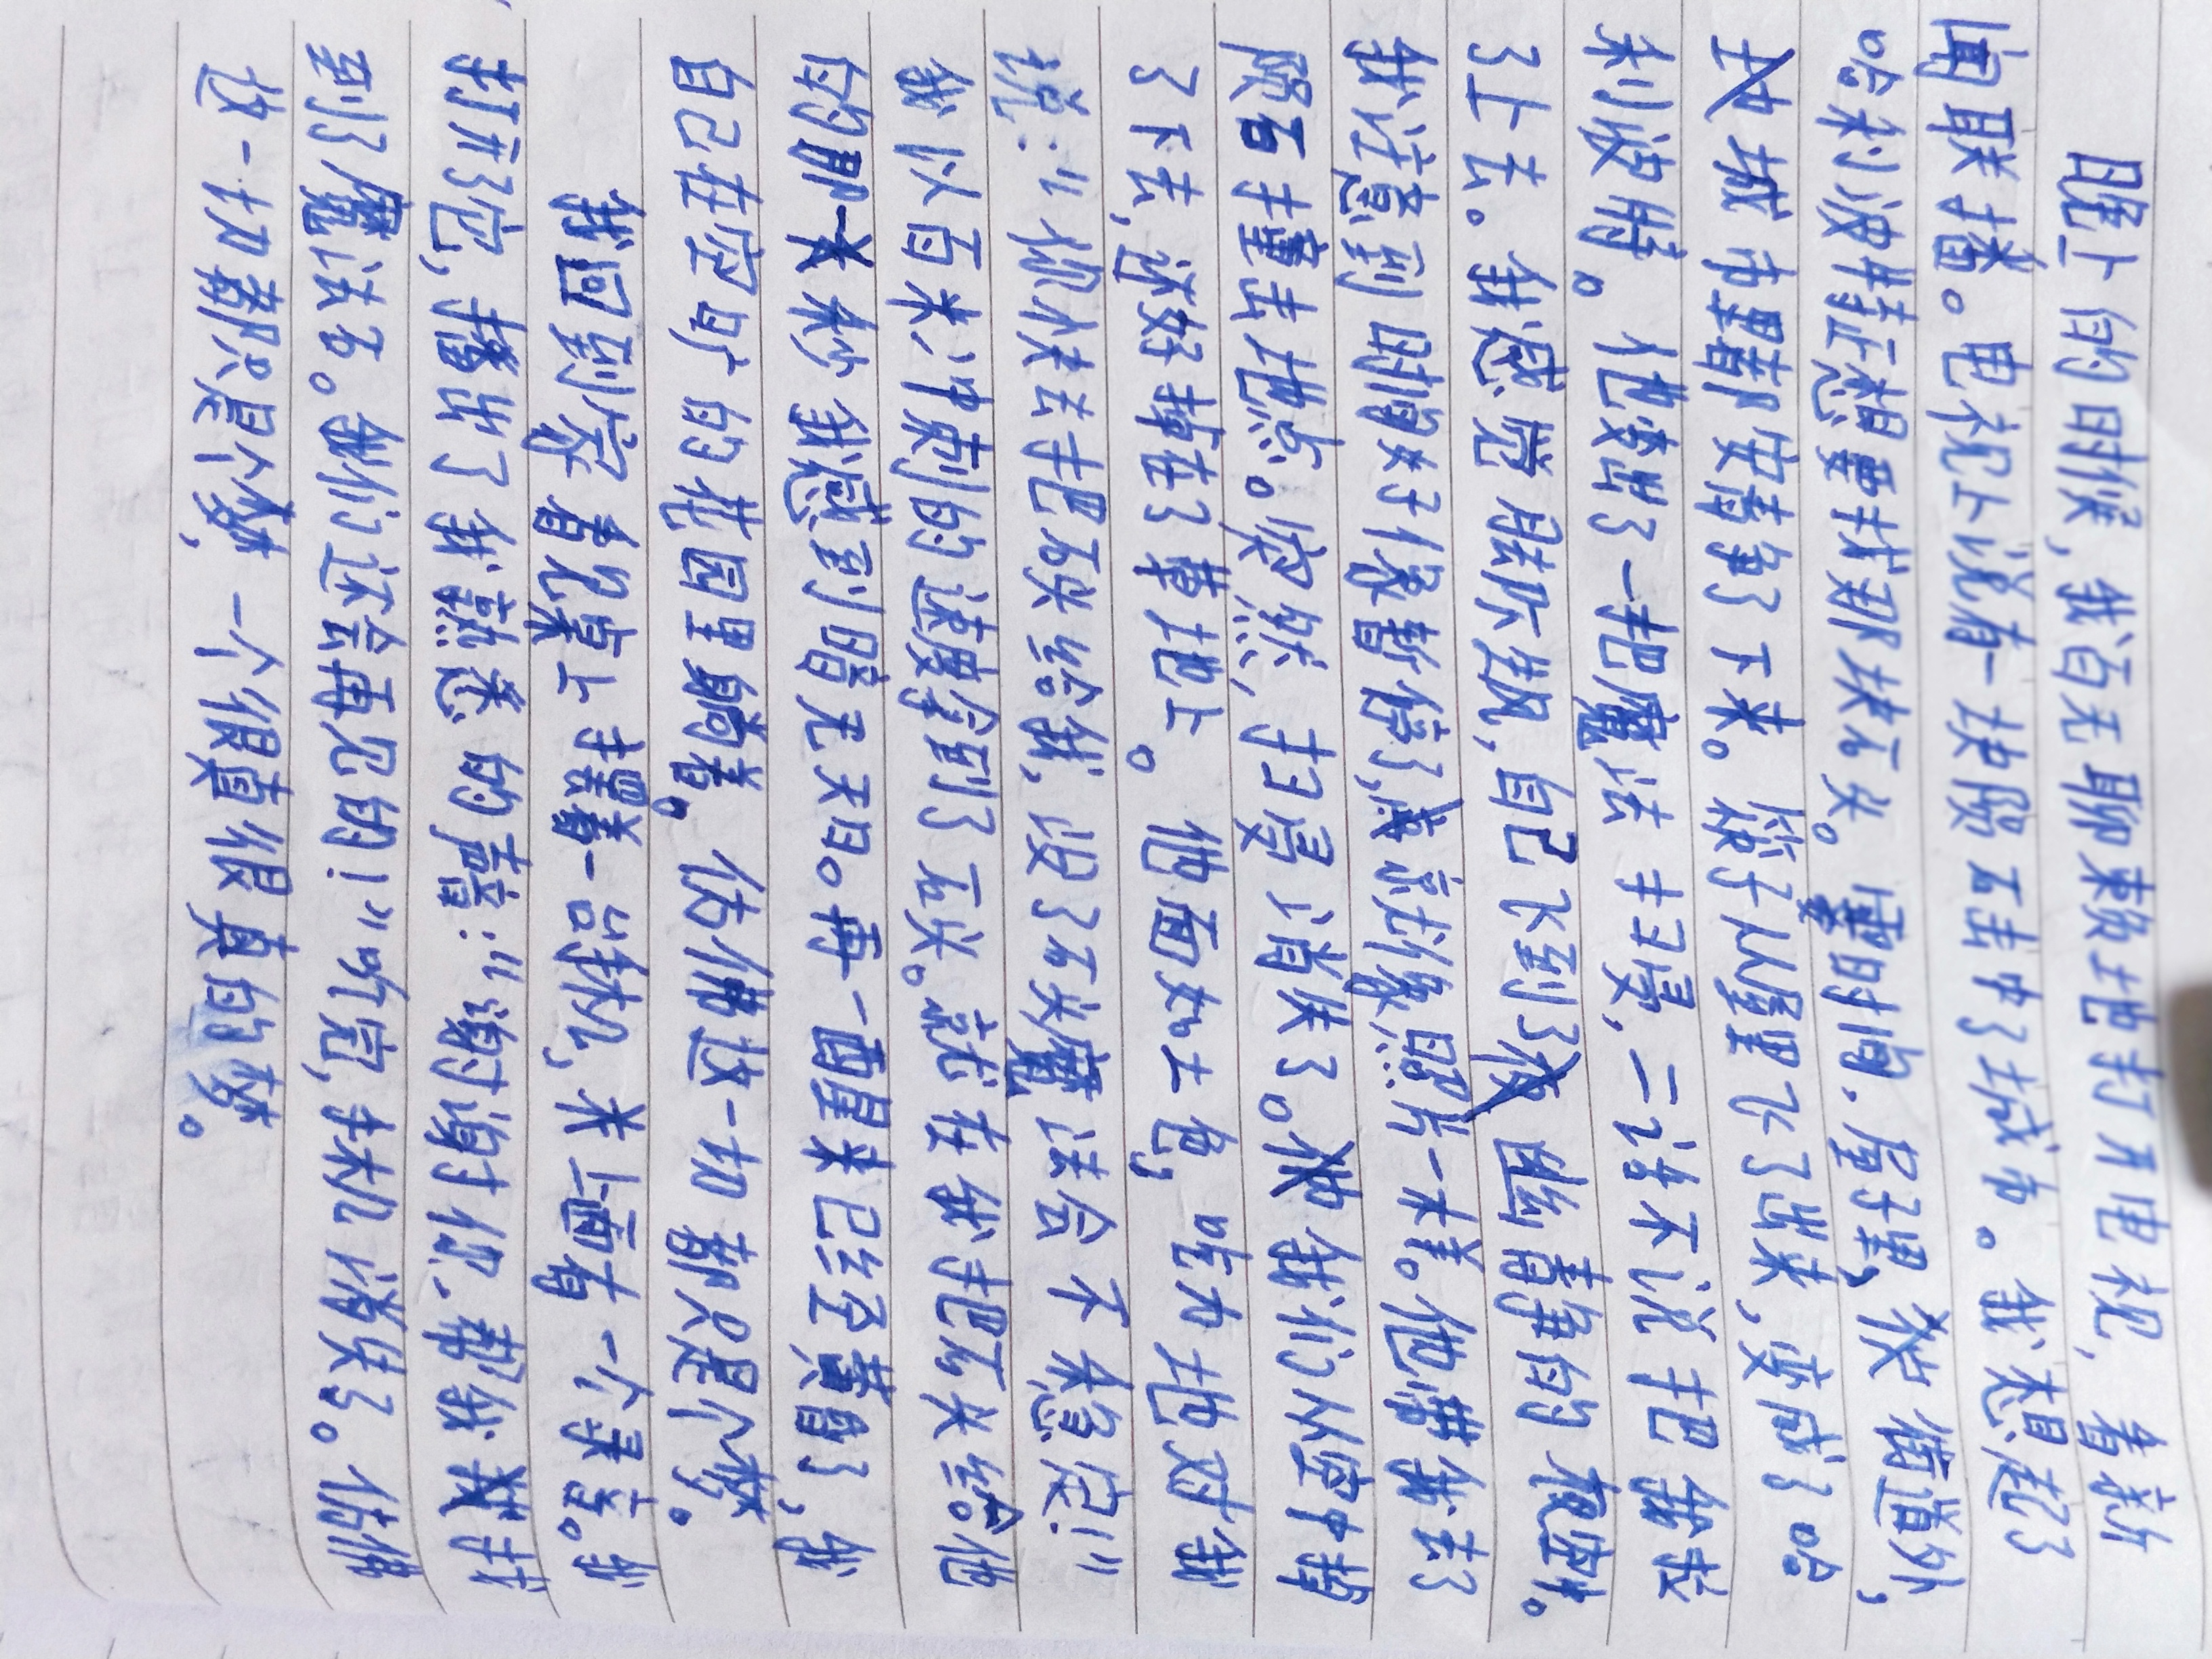 晚上的时候，我百无聊赖地打开电视，看新
闻联播。电视上说有一块陨石击中了城市。我想起了
哈利波特正想要找那块石头。霎时间，屋子里，街道外，
城市里都安静了下来。像子从壁里飞了出来，变成了哈
利波特。他变出了一把魔法扫帚，二话不说把我拉
了上去。我感觉腾了起，自己飞到了幽静的夜空中。
我注意到时间好像暂停了，就像照片一样。他带我去了
陨石撞击地点。突然，扫帚消失了。我们从空中掉
了下去，还好掉在了草地上。他面如土色，吃力地对我
说：“你快去把石头给我，没了石头魔法会不稳定！”
我以百米冲刺的速度拿到了石头。就在我把石头给他
的那一秒我感到暗无天日。再一醒来已经黄昏了，我
自己在空旷的花园里躺着。仿佛这一切都只是个梦。
我回到家看见桌上摆着一台手机，上面有一个录音。我
打开了它，播出了我熟悉的声音：“谢谢你，帮我找
到了魔法石。我们还会再见的！”听完，手机消失了。仿佛
这一切都只是个梦，一个很真很真的梦。